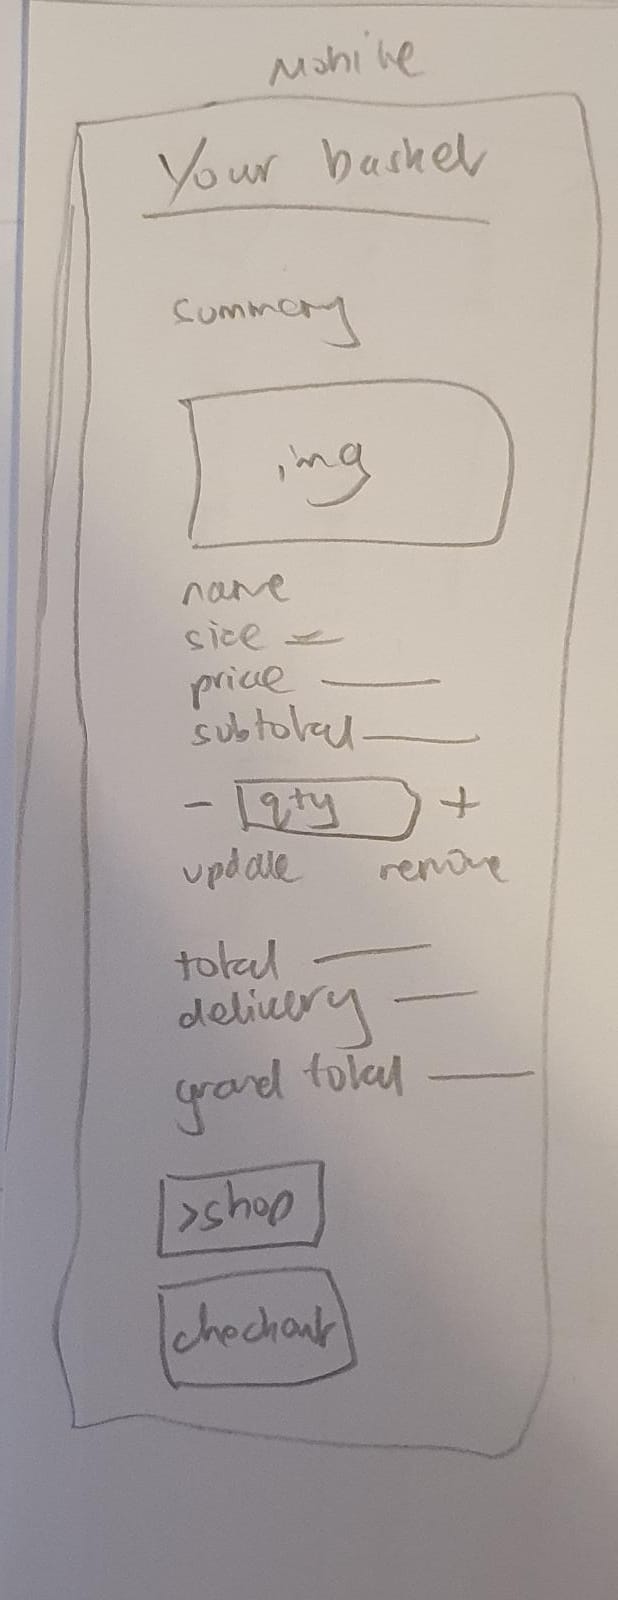 Mobile
Your basket
summary
img
name
size
price
subtotal
- qty +
update remove
total
delivery
grand total
>shop
checkout